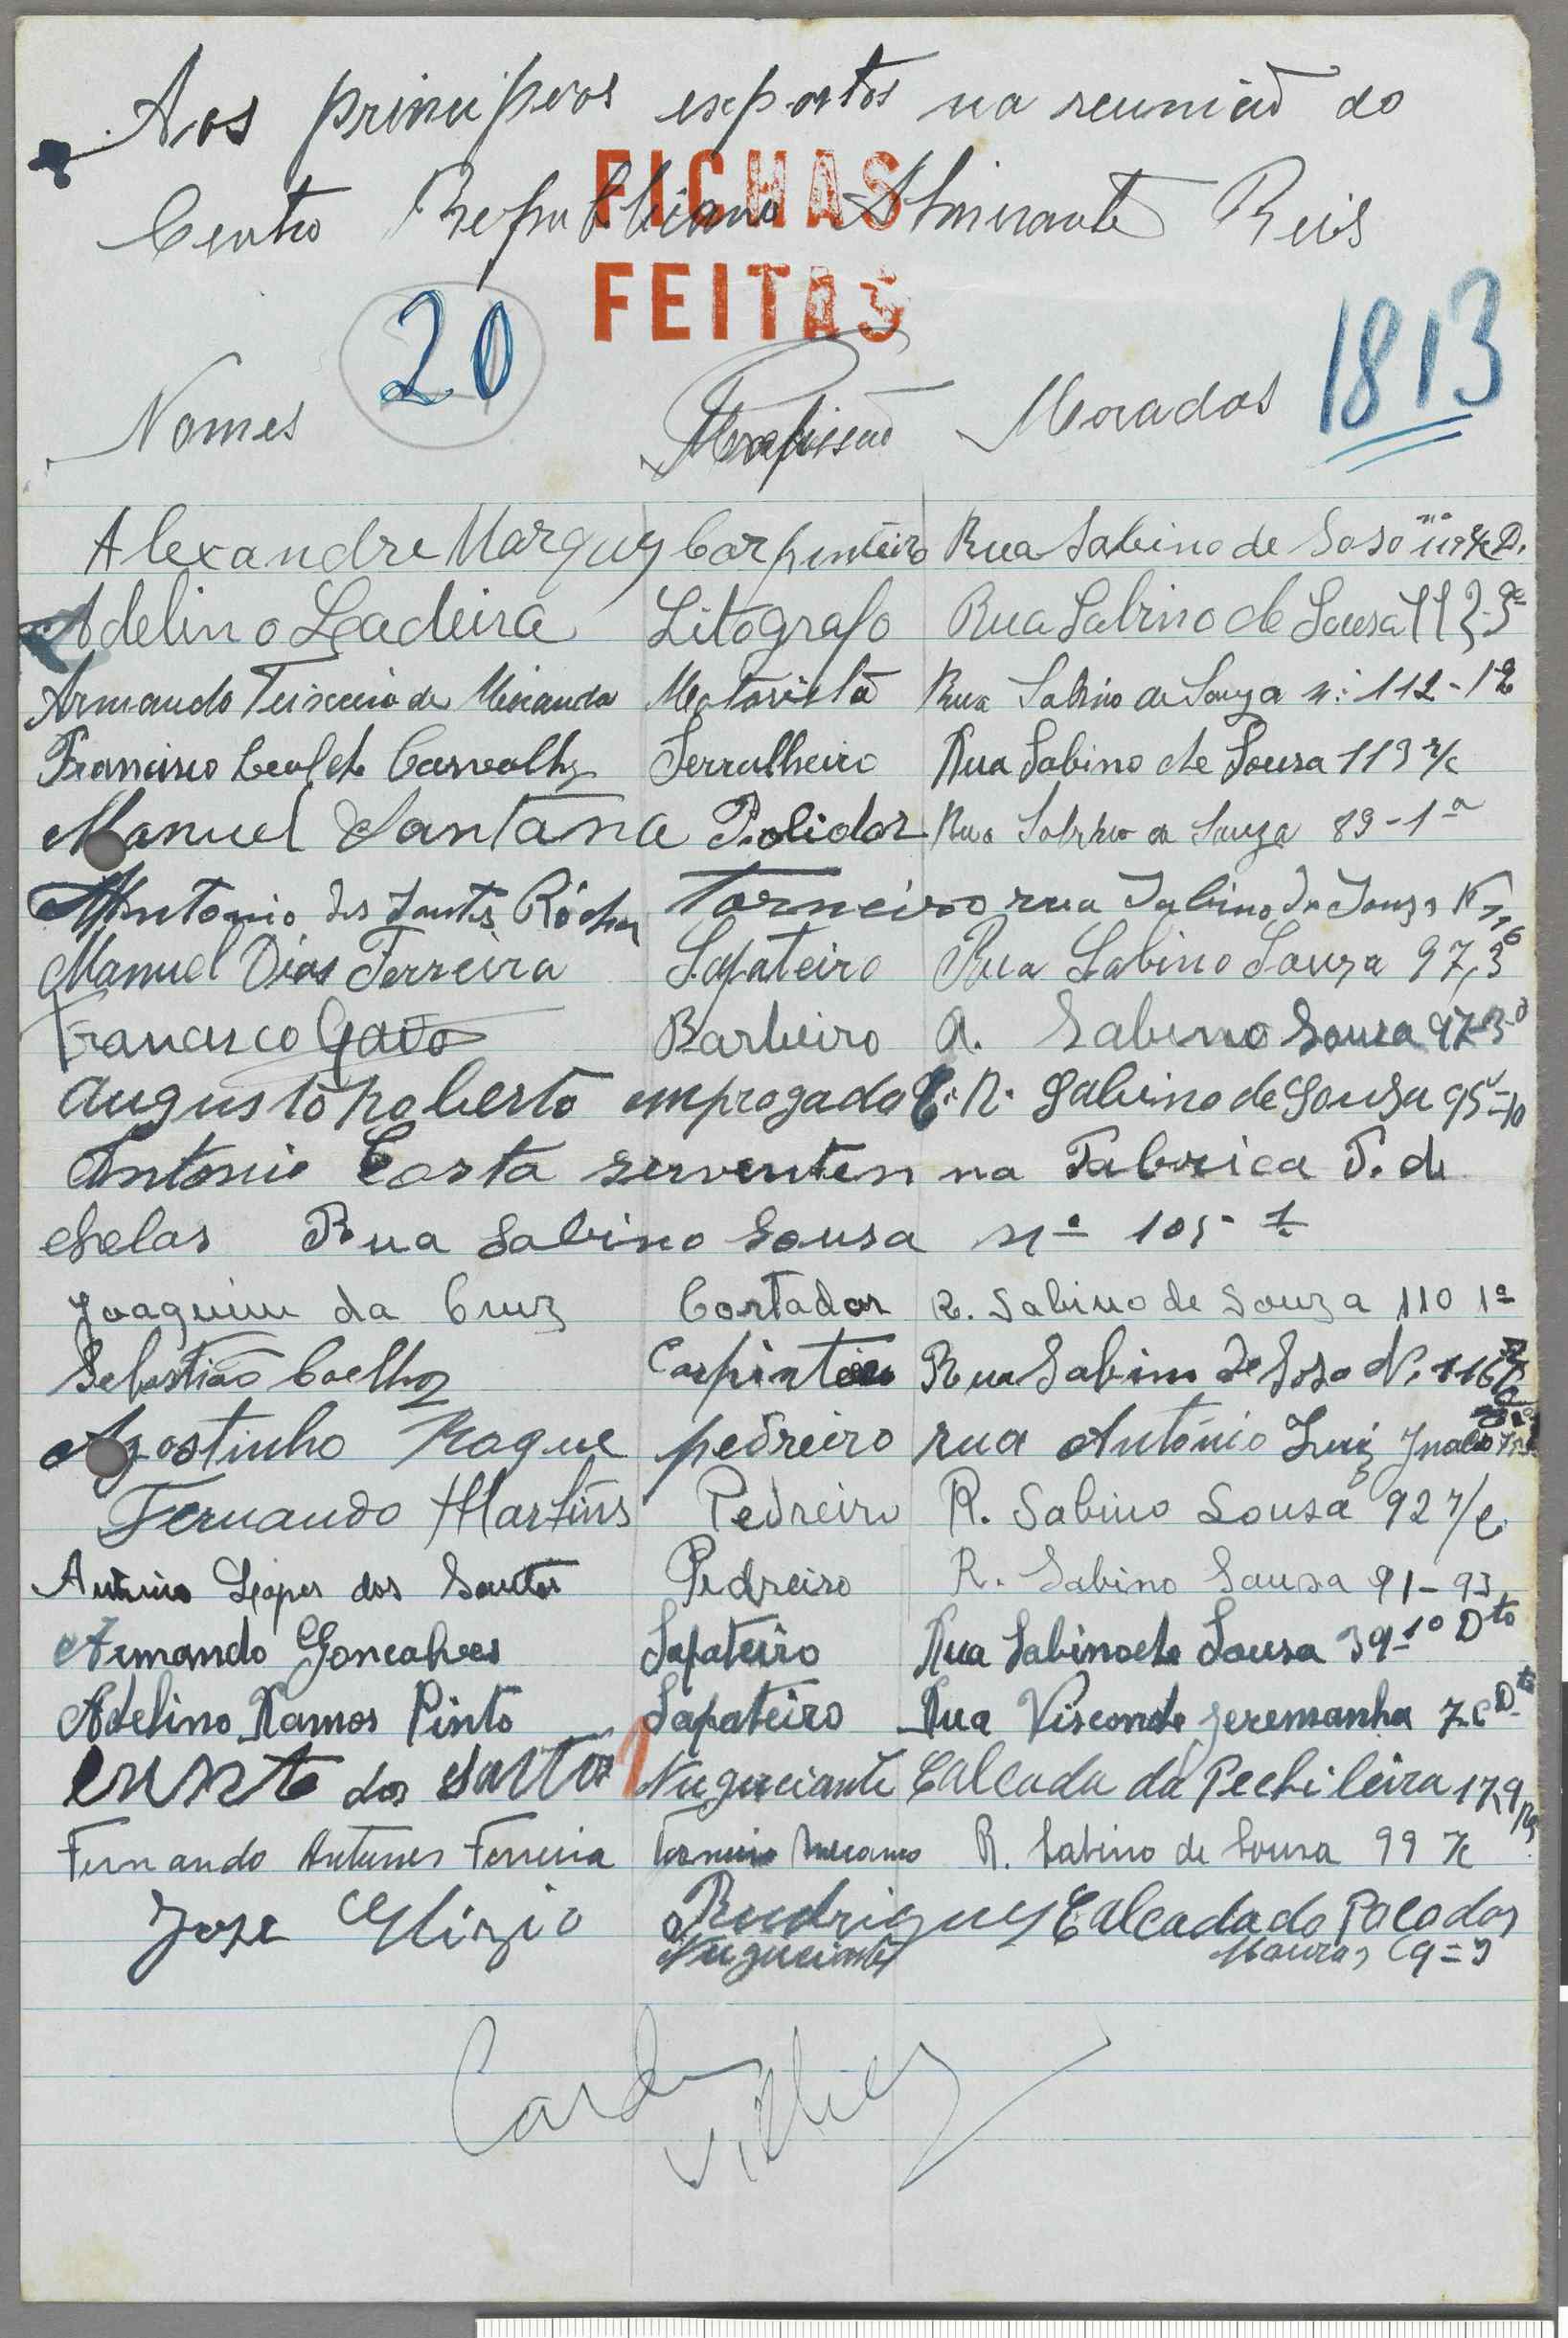 Aos principios expostos na reunião do
Centro Republicano Almirante Reis
FICHAS
FEITAS
20
1813
Nomes Profissão Moradas
Alexandre Marques Carpinteiro Rua Sabino de Soso nº
Adelino Ladeira Litografo Rua Sabino de Sousa 112-3º
Armando Teixeira de Miranda Motorista Rua Sabino de Souza nº 112-1º
Francisco Carvalho Serralheiro Rua Sabino de Sousa 113 r/c
Manuel Santana Polidor Rua Sabino de Souza 89-1º
Antonio dos Santos Rócha Torneiro rua Sabino de Souza Nº 116
Manuel Dias Ferreira Sapateiro Rua Sabino Souza 97,3º
Francisco Gavo Barbeiro R. Sabino Souza 97-3º
Augusto Roberto empregado C. R. Sabino de Sousa 95-
Antonio Costa serventen na Fabrica T. de
chelas Rua Sabino Sousa nº 105-1º
Joaquim da Cruz Cortador R. Sabino de Souza 110 1º
Sebastião Coelho Carpinteiro Rua Sabino de Soso Nº 116
Agostinho Roque pedreiro rua António Luiz
Fernando Martins Pedreiro R. Sabino Sousa 92 r/c
Lopes dos Santos Pedreiro R. Sabino Sousa 91-93
Armando Goncalves Sapateiro Rua Sabino de Sousa 39-1º Dto
Adelino Ramos Pinto Sapateiro Rua Visconde Jeremanha 7
dos Nuguciante Calcada da Pechileira 17
Fernando Antunes Ferreira Torneiro Mecanico R. Sabino de Sousa 99 r/c
Jose Elizio Rudrigues Calcada do Paco dos
Nuguciante Mouros